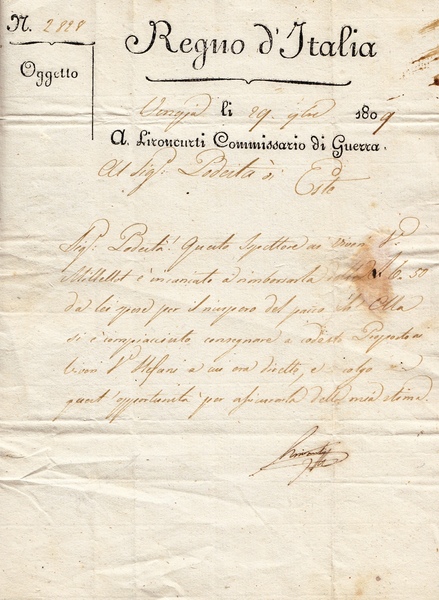 N. 2828
Regno d'Italia
Oggetto
Venezia li 29. 9bre 1809
A. Lironcurti Commissario di Guerra.
Al Sigr. Podestà di
Este
Sigr. Podestà! Questo Ispettore ai Viveri Sr.
Millellot è incaricato a rimborsarla 16. 50
da lei spese per il ricupero del che Ella
si è compiaciuta consegnare a codesto Preposto ai
Viveri Sr. Stefani a cui era diretto, e colgo
quest'opportunità per assicurarla della mia stima.